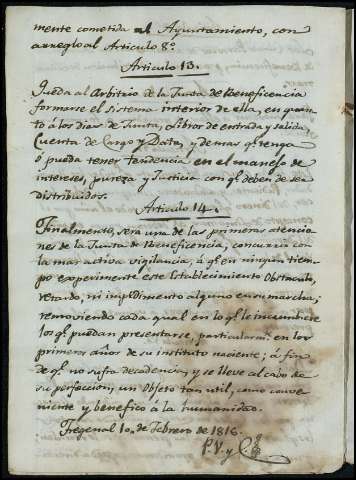 mente cometida al Ayuntamiento, con
arreglo al Articulo 8.º
Articulo 13.
Queda al Arbitrio de la Junta de Beneficencia
formarse el sistema interior de ella, en quan
to á los dias de Junta, á libros de entrada y salida,
Cuenta de Cargo y Data, y demas q.e tenga
ó pueda tener tendencia en el manejo de
intereses, pureza y Justicia con q.e deben de ser
distribuidos.
Articulo 14.
Finalmento, sera una de las primeras atencio
nes de la Junta de Beneficencia, concurrir con
la mas activa vigilancia, á q.e en ningun tiem
po experimente este Establecimiento Obstaculo,
retardo, ni impedimento alguno en su marcha;
removiendo cada qual en lo q.e le incumbe
los q.e puedan presentarse, particularm.te en los
primeros años de su instituto naciente; á fin
de q.e no sufra decadencia, y se lleve al cabo de
su perfeccion, un Objeto tan util, como conve
niente y benefico á la humanidad.
Fregenal 10 de Febrero de 1816.
P. V. y C.